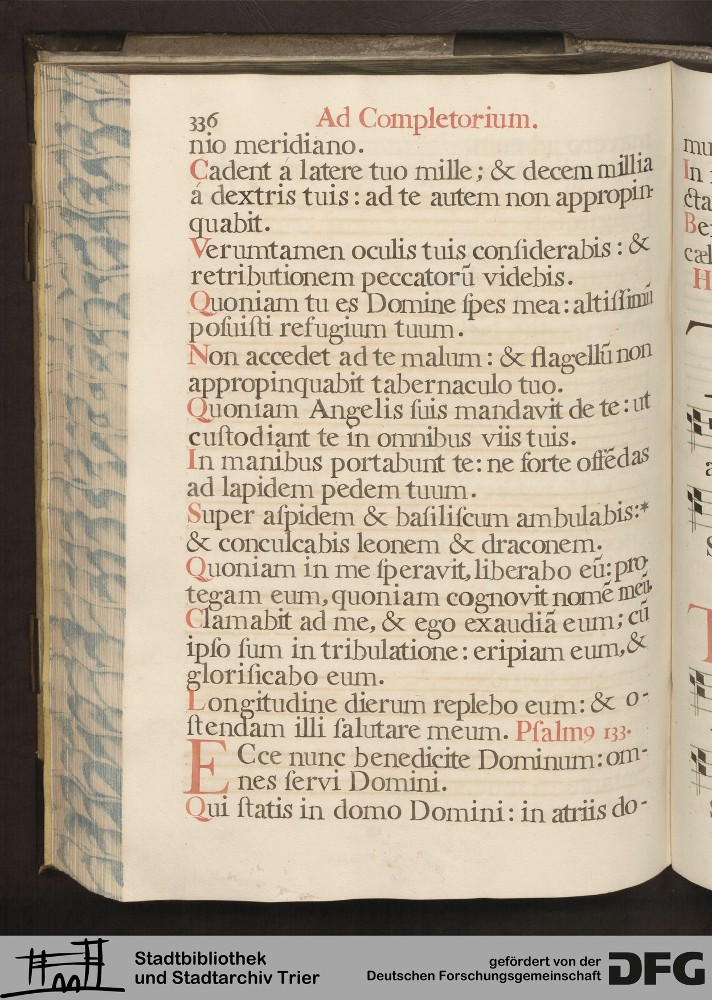 336 Ad Completorium.
nio meridiano.
Cadent á latere tuo mille; & decem millia
á dextris tuis: ad te autem non appropin-
quabit.
Verumtamen oculis tuis conſiderabis: &
retributionem peccatorū videbis.
Quoniam tu es Domine ſpes mea: altiſſimū
poſuiſti refugium tuum.
Non accedet ad te malum: & flagellū non
appropinquabit tabernaculo tuo.
Quoniam Angelis ſuis mandavit de te: ut
cuſtodiant te in omnibus viis tuis.
In manibus portabunt te: ne forte offēdas
ad lapidem pedem tuum.
Super aſpidem & baſiliſcum ambulabis:*
& conculcabis leonem & draconem.
Quoniam in me ſperavit, liberabo eū: pro-
tegam eum, quoniam cognovit nomē meū.
Clamabit ad me, & ego exaudiā eum; cū
ipſo ſum in tribulatione: eripiam eum, &
glorificabo eum.
Longitudine dierum replebo eum: & o-
ſtendam illi ſalutare meum. Pſalmꝯ 133.
ECce nunc benedicite Dominum: om-
nes ſervi Domini.
Qui ſtatis in domo Domini: in atriis do-
mu
In
cta
Be
cæl
H
a
S
T
Stadtbibliothek
und Stadtarchiv Trier
gefördert von der
Deutschen Forschungsgemeinschaft
DFG